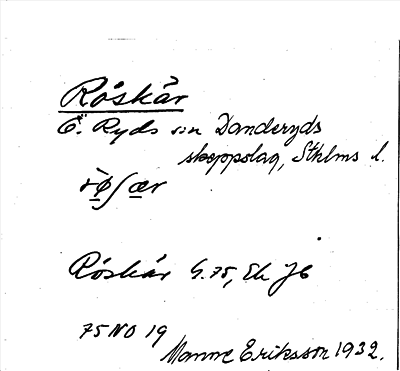 Röskär
Ö. Ryds sn Danderyds
skeppslag, Sthlms l.
rø̀ʃær
Röskär G.75, Ek J6
75 NO 19
Manne Eriksson 1932.